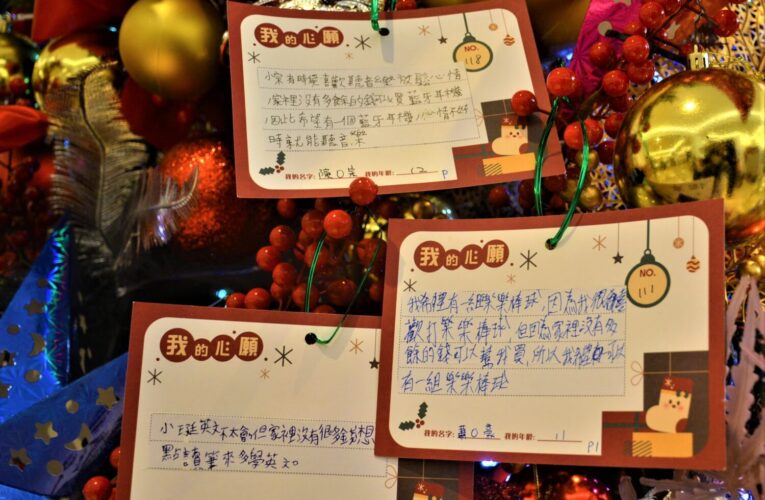 我的心願
NO.
118
小宗有時候喜歡聽音樂放鬆心情
家裡沒有多餘的錢可以買藍牙耳機
因此希望有一個藍牙耳機 心情不好
時就能聽音樂
我的名字: 陳O宗 我的年齡: 12 P
我的心願
NO.
111
我希望有一組樂樂棒球,因為我很喜
歡打樂樂棒球,但因為家裡沒有多
餘的錢可以幫我買,所以我希望可以
有一組樂樂棒球
我的名字: 蕭O 我的年齡: 11 P1
我的心願
小廷英文不太會,但家裡沒有很多錢想
點讀筆來多學英文。